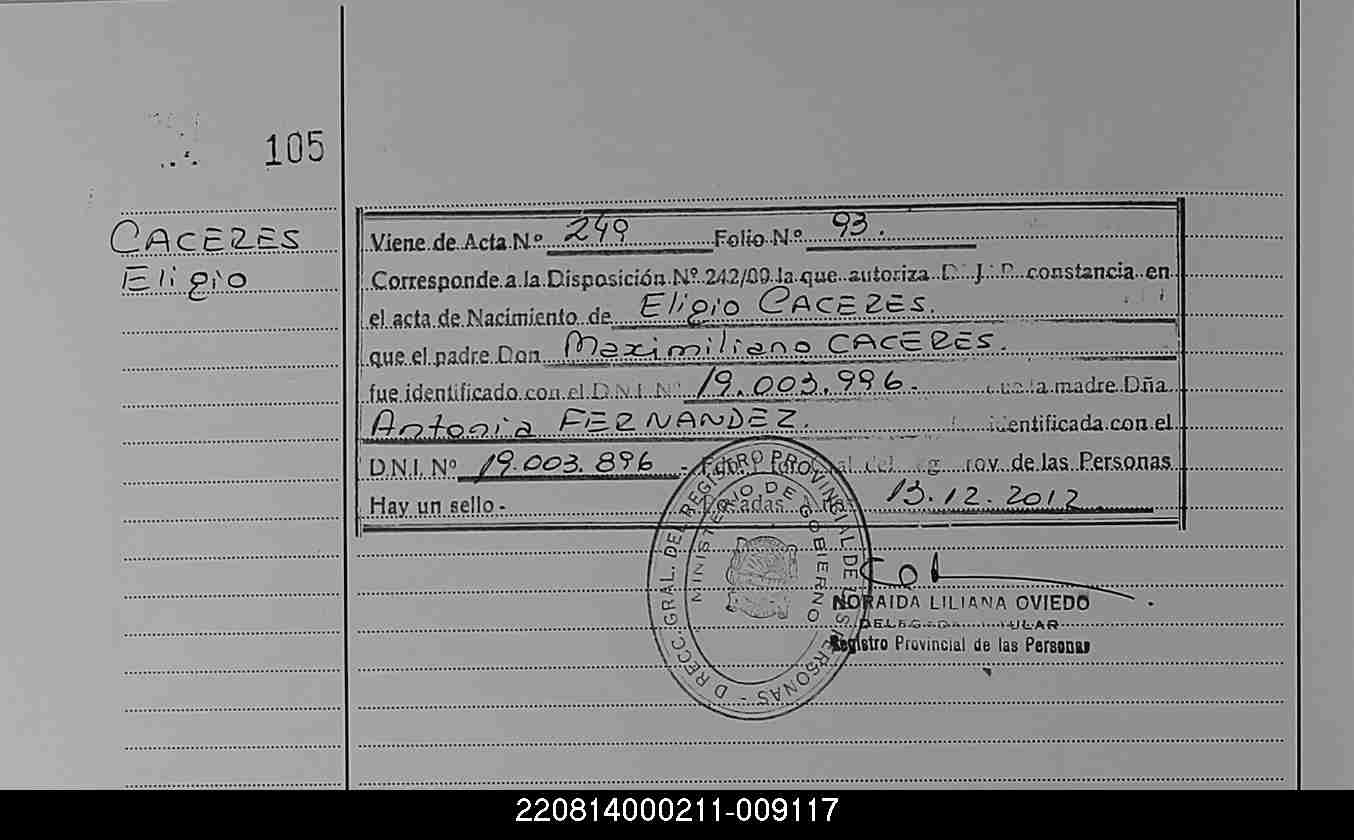 105
CACERES
Eligio
Viene de Acta Nº 249 Folio Nº 93.
Corresponde a la Disposición Nº 242/09 la que autoriza D. J. R. constancia en
el acta de Nacimiento de Eligio CACERES.
que el padre Don Maximiliano CACERES.
fue identificado con el D.N.I. Nº 19.003.996.- que la madre Dña
Antonia FERNANDEZ. identificada con el
D.N.I. Nº 19.003.896 - del de las Personas
Hay un sello.- Posadas 13.12.2012
DIRECC. GRAL. DEL REGISTRO PROVINCIAL DE LAS PERSONAS -
MINISTERIO DE GOBIERNO
NORAIDA LILIANA OVIEDO
DELEGADA TITULAR
Registro Provincial de las Personas
220814000211-009117